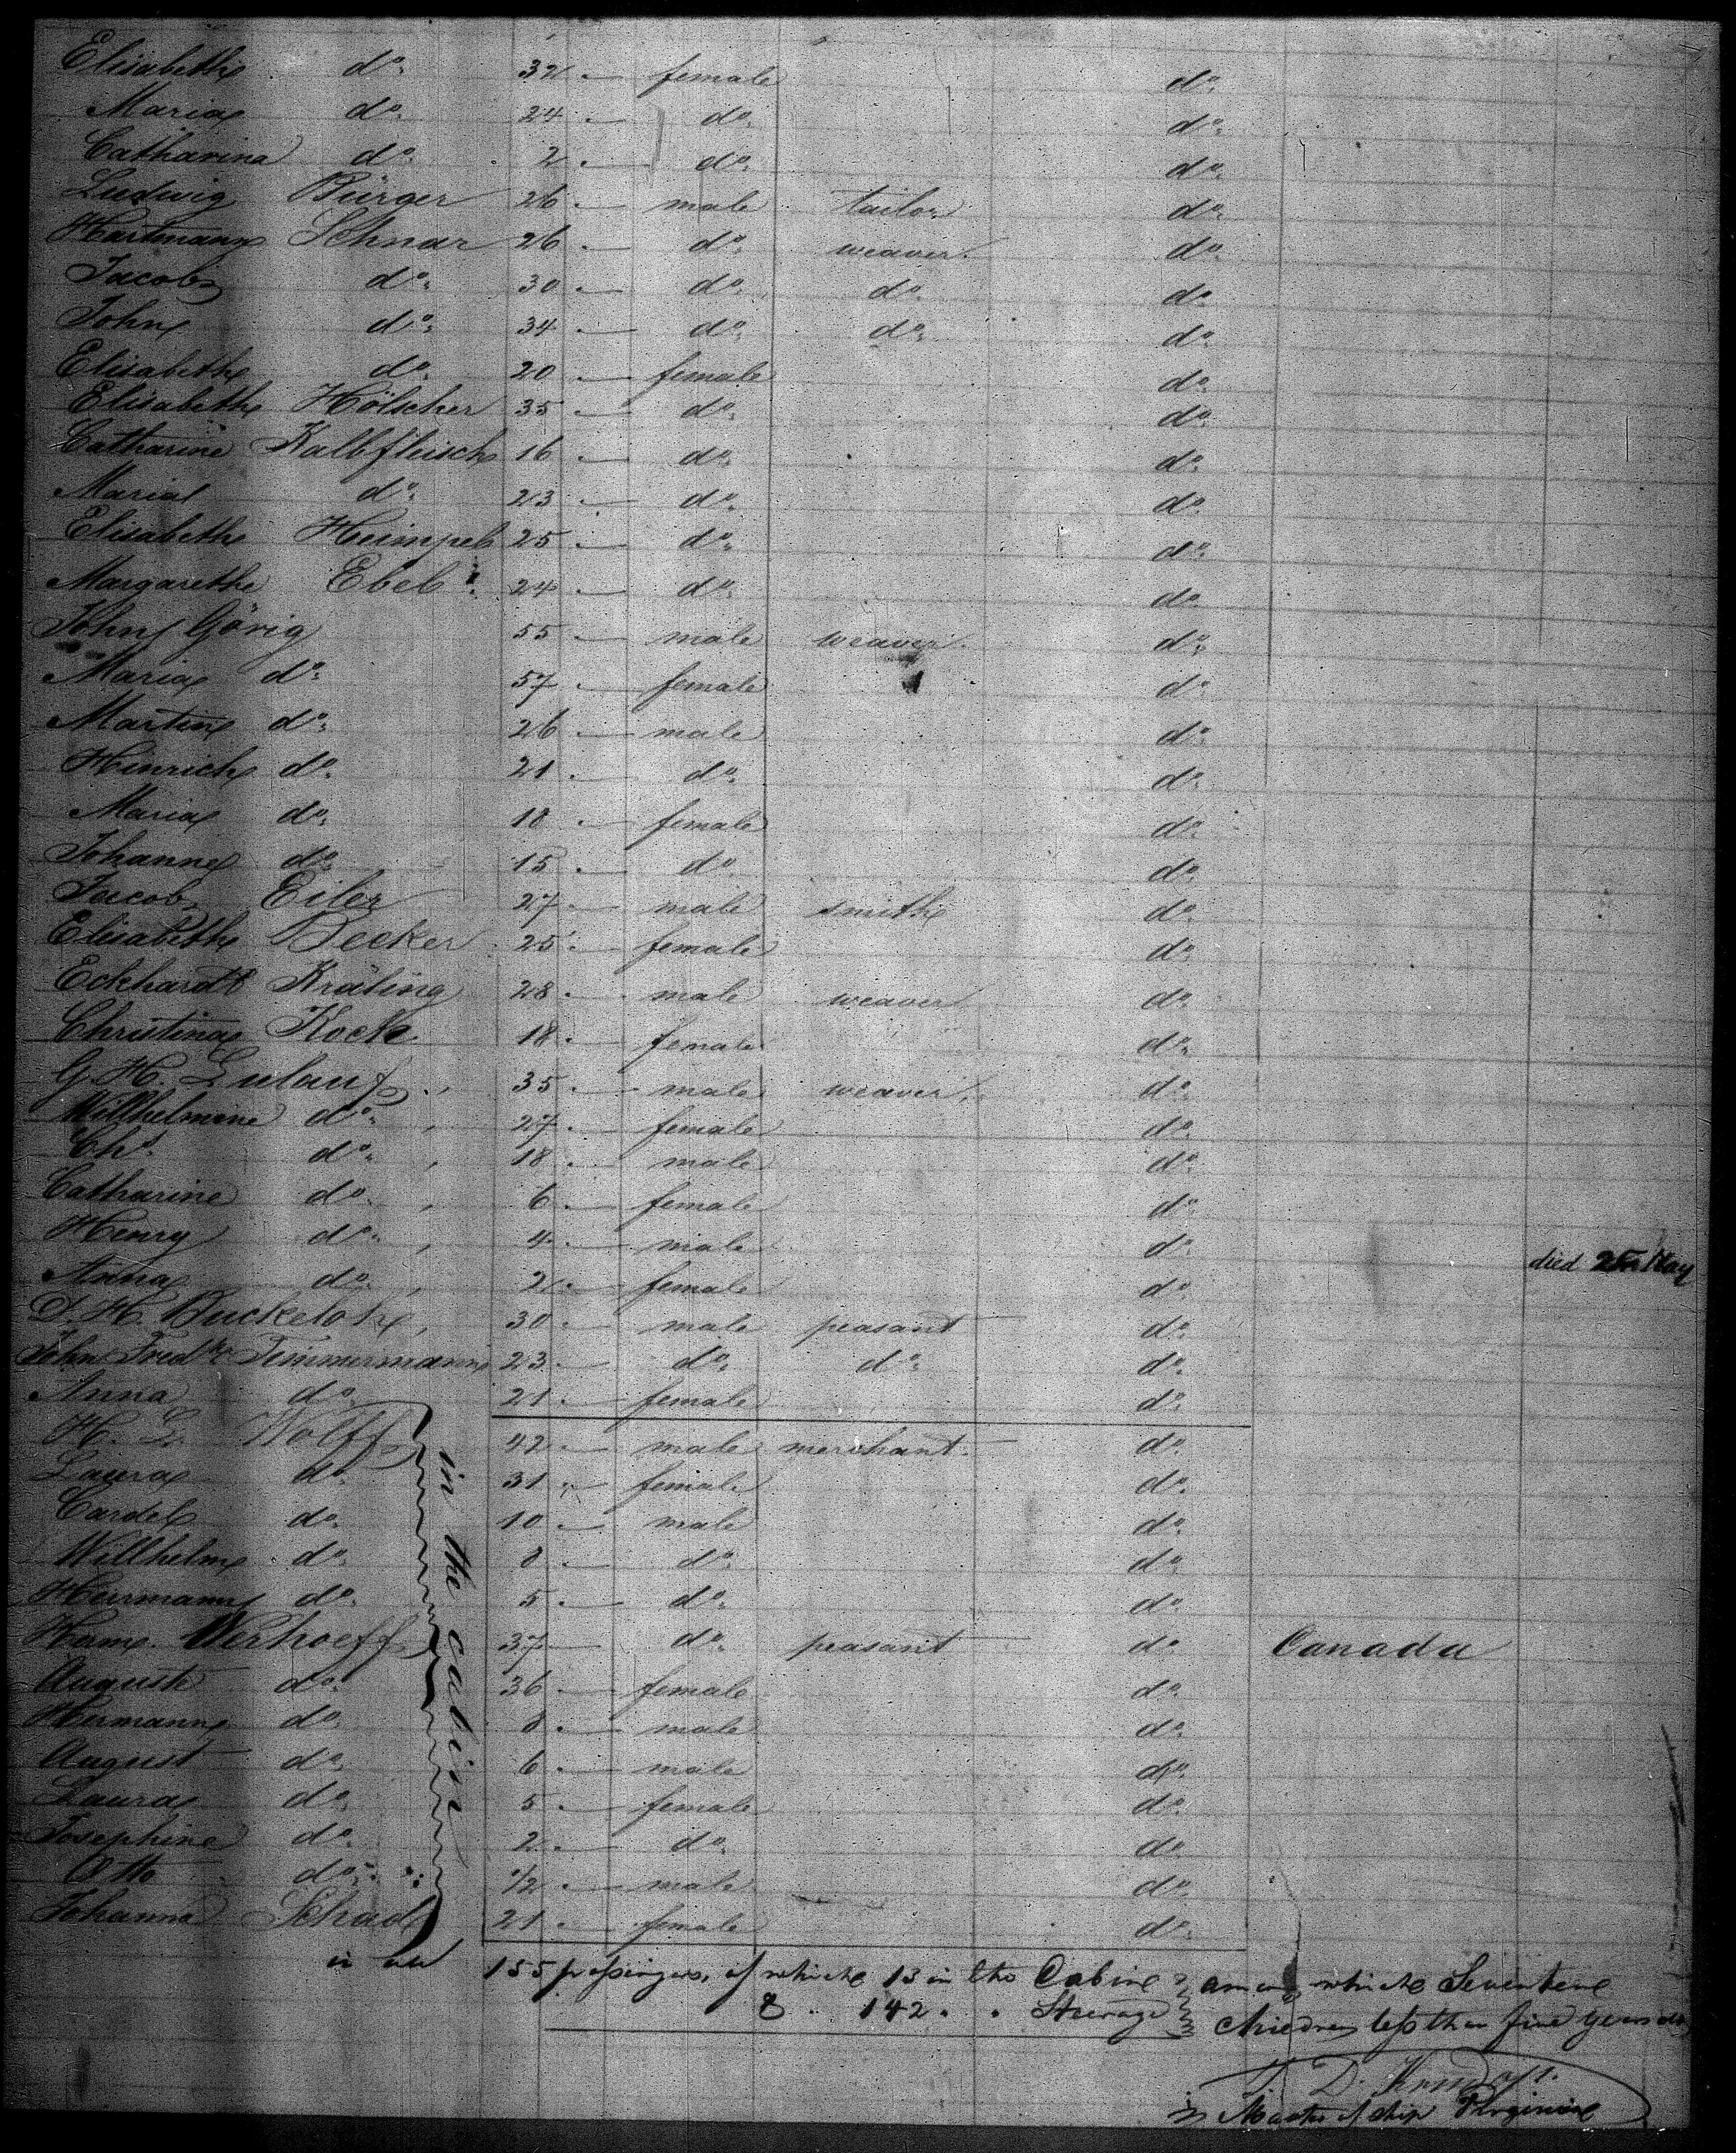 Elisabeth do. 32 . — female do.
Maria do. 24 . — do. do.
Catharina do. 2 . — do. do.
Ludwig Bürger 26 . — male tailor do.
Hartmann Schnar 26 . — do. weaver. do.
Jacob do. 30 . — do. do. do.
John do. 34 . — do. do. do.
Elisabeth do. 20 . — female do.
Elisabeth Hölscher 35 — do. do.
Catharine Kalbfleisch 16 . — do. do.
Maria do. 23 . — do. do.
Elisabeth Heimpel 25 . — do. do.
Margarethe Ebel . 24 . — do. do.
John Görig 55 — male weaver. do.
Maria do. 57 . — female do.
Martin do. 26 . — male do.
Hinrich do. 21 . — do. do.
Maria do. 18 . — female do.
Johanne do. 15 . — do. do.
Jacob Eiler 27 . — male smith do.
Elisabeth Becker 25 . — female do.
Eckhardt Kräling 28 . — male weaver do.
Christina Kock 18 . — female do.
G. H. Lulauf 35 . — male weaver. do.
Willhelmine do. 27 . — female do.
Chs. do. 18 . — male do.
Catharine do. 6 . — female do.
Henry do. 4 . — male do. died 25 May
Anna do. 2 . — female do.
D. H. 30 . — male peasant do.
John Fredk. Timmermann 23 . — do. do. do.
Anna do. 21 . — female do.
H. L. Wolff 42 . — male merchant. do.
Laura do. 31 . — female do.
Cardel do. 10 . — male do.
Willhelm do. 8 . — do. do.
Hermann do. 5 . — do. do.
Herm. Verhoeff 37 — do. peasant do. Canada
Auguste do. 36 . — female do.
Hermann do. 8 . — male do.
August do. 6 . — male do.
Laura do. 5 . — female do.
Josephine do. 2 . — do. do.
Otto do. 1/2 . — male do.
Johanna Schad 21 . — female do.
in the cabin
in all 155 passengers, of which 13 in the Cabin among which Seventeen
& . . 142 . . Steerage children less than five years old
Master of ship Virginia